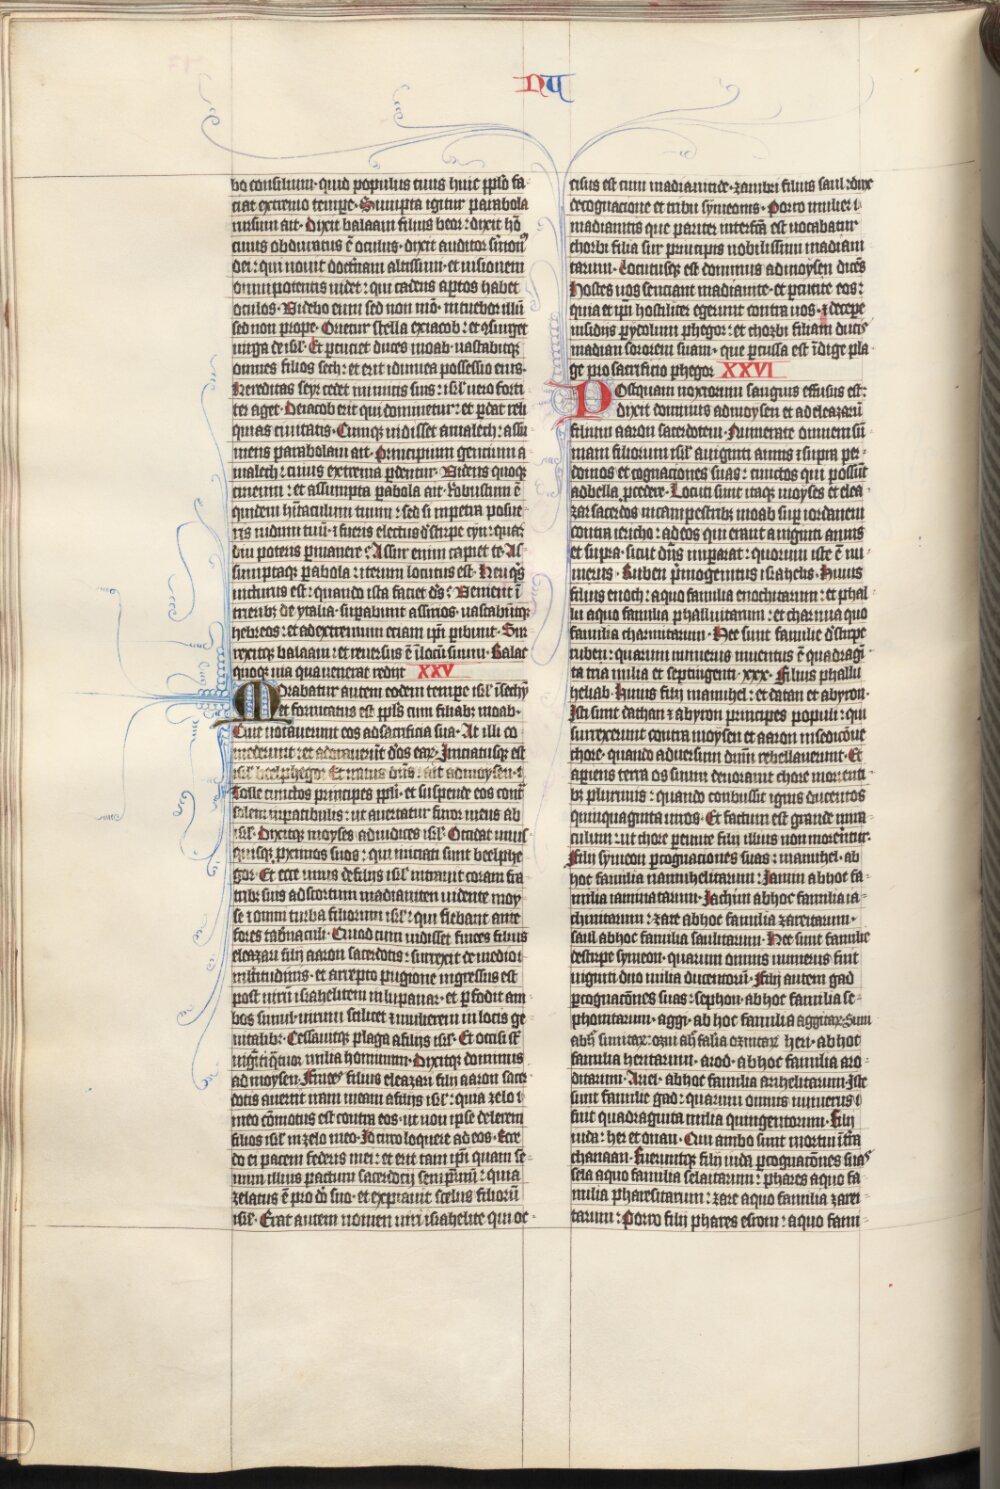 NU
bo consilium· quid populus tuus huic pplo fa
ciat extremo tempe· Sumpta igitur parabola
rursum ait· Dixit balaam filius beor: dixit hō
cuius obduratus ē oculus· dixit auditor sermonū
dei: qui novit doctrinam altissimi· et visionem
omnipotentis videt: qui cadens aptos habet
oculos· Videbo eum sed non mō· intuebor illū
sed non prope· Orietur stella ex iacob: et ꝯsurget
virga de isrl· Et percutiet duces moab· vastabitqꝫ
omnes filios seth: et erit idumea possessio eius·
Hereditas seyr cedet inimicis suis: isrl vero forti
ter aget· De iacob erit qui dominetur: et pdat reli
quias civitatis· Cumqꝫ vidisset amalech: assu
mens parabolam ait· Principium gentium a
malech: cuius extrema pdentur· Videns quoqꝫ
cineum: et assumpta pabola ait· Robustum ē
quidem hitaculum tuum: sed si in petra posue
ris nidum tuū· et fueris electus de stirpe cyn: quā
diu poteris pmanere? Assur enim capiet te· As
sumptaqꝫ pabola: iterum locutus est· Heu qꝫs
victurus est: quando ista faciet dꝫs? Venient ī
trieribꝫ de ytalia· supabunt assirios· vastabuntqꝫ
hebreos: et ad extremum etiam ipi pibunt· Sur
rexitqꝫ balaam: et reversus ē ī locū suum· Balac
quoqꝫ via qua venerat rediit XXV
Morabatur autem eodem tempe isrl ī sechym
et fornicatus est ppls cum filiabꝫ moab·
Que vocaverunt eos ad sacrificia sua· At illi co
mederunt: et adoraverūt dꝫos eaꝝ· Iniciatusqꝫ est
isrl beelphegor Et iratus dns: ait ad moysen·
Tolle cunctos principes ppli· et suspende eos cont
solem in patibulis: ut avertatur furor meus ab
isrl· Dixitqꝫ moyses ad iudices isrl· Occidat unus
quisqꝫ pximos suos: qui iniciati sunt beelphe
gor· Et ecce unus de filiis isrl intravit coram fra
tribꝫ suis ad scortum madianiten vidente moy
se et omni turba filiorum isrl: qui flebant ante
fores tabnaculi· Quod cum vidisset finees filius
eleazari filii aaron sacerdotis: surrexit de medio
multitudinis· et arrepto pugione ingressus est
post virū israhelitem in lupanar· et pfodit am
bos simul· virum scilicet et mulierem in locis ge
nitalibꝫ· Cessavitqꝫ plaga a filiis isrl· Et occisi sūt
viginti quatuor milia hominum· Dixitqꝫ dominus
ad moysen· Finees filius eleazari filii aaron sacer
dotis avertit iram meam a filiis isrl: quia zelo
meo cōmotus est contra eos· ut non ipse delerem
filios isrl in zelo meo· Idcirco loquere ad eos· Ecce
do ei pacem federis mei: et erit tam ipi quam se
mini illius pactum sacerdotii sempitnū: quia
zelatus ē pro dꝫo suo· et expiavit scelus filiorū
isrl· Erat autem nomen viri israhelite qui oc
cisus est cum madianitide· zambri filius salu: dux
de cognacione et tribu symeonis· Porro mulier
madianitis que pariter interfca est vocabatur
chorbi filia sur principis nobilissimi madiani
tarum· Locutusqꝫ est dominus ad moysen dicēs
Hostes vos senciant madianite· et pcutite eos:
quia et ipi hostiliter egerunt contra vos· et decepe
insidiis p ydolum phegor: et chorbi filiam ducis
madian sororem suam· que pcussa est ī die pla
ge pro sacrificio phegor XXVI
Postquam noxiorum sanguis effusus est:
dixit dominus ad moysen et ad eleazarū
filium aaron sacerdotem· Numerate omnem sū
mam filiorum isrl a viginti annis et supra per
domos et cognaciones suas: cunctos qui possūt
ad bella pcedere· Locuti sunt itaqꝫ moyses et elea
zar sacerdos in campestribꝫ moab sup iordanem
contra iericho: ad eos qui erant a viginti annis
et supra· sicut dns imparat: quorum iste ē nu
merus· Ruben pmogenitus israhelis· Huius
filius enoch: a quo familia enochitarum: et phal
lu a quo familia phalluitarum: et charmi a quo
familia charmitarum· Hee sunt familie de stirpe
ruben: quarum numerus inventus ē quadragī
ta tria milia et septingenti· xxx· Filius phallu
heliab· Huius filii manuhel: et datan et abyron·
Isti sunt dathan et abyron principes populi: qui
surrexerunt contra moysen et aaron in sedicione
chore· quando adversum dnm rebellaverunt· Et
apiens terra os suum devoravit chore morienti
bꝫ plurimis: quando conbussit ignis ducentos
quinquaginta viros· Et factum est grande mira
culum: ut chore peunte filii illius non morerentur·
Filii symeon p cognaciones suas: manuhel· ab
hoc familia namuhelitarum: Jamin ab hoc fa
milia iaminitarum· Jachim ab hoc familia ia
chinitarum: zare ab hoc familia zareitarum·
saul ab hoc familia saulitarum· Hee sunt familie
de stirpe symeon· quarum omnis numerus fuit
viginti duo milia ducentorū· Filii autem gad
p cognacōnes suas: sephon· ab hoc familia se
phonitarum· aggi· ab hoc familia aggitaꝝ· Suni
ab h sunitaꝝ: ozni ab h falia oznitaꝝ heri· ab hoc
familia heritarum· arod· ab hoc familia aro
ditarum· Ariel· ab hoc familia arihelitarum· Iste
sunt familie gad: quarum omnis numerus
fuit quadraginta milia quingentorum· Filii
iuda: her et onan· Qui ambo sunt mortui ī tra
chanaan· Fueruntqꝫ filii iuda p cognacōnes suas
sela a quo familia selaitarum: phares a quo fa
milia pharesitarum: zare a quo familia zarei
tarum: Porro filii phares esrom: a quo fami